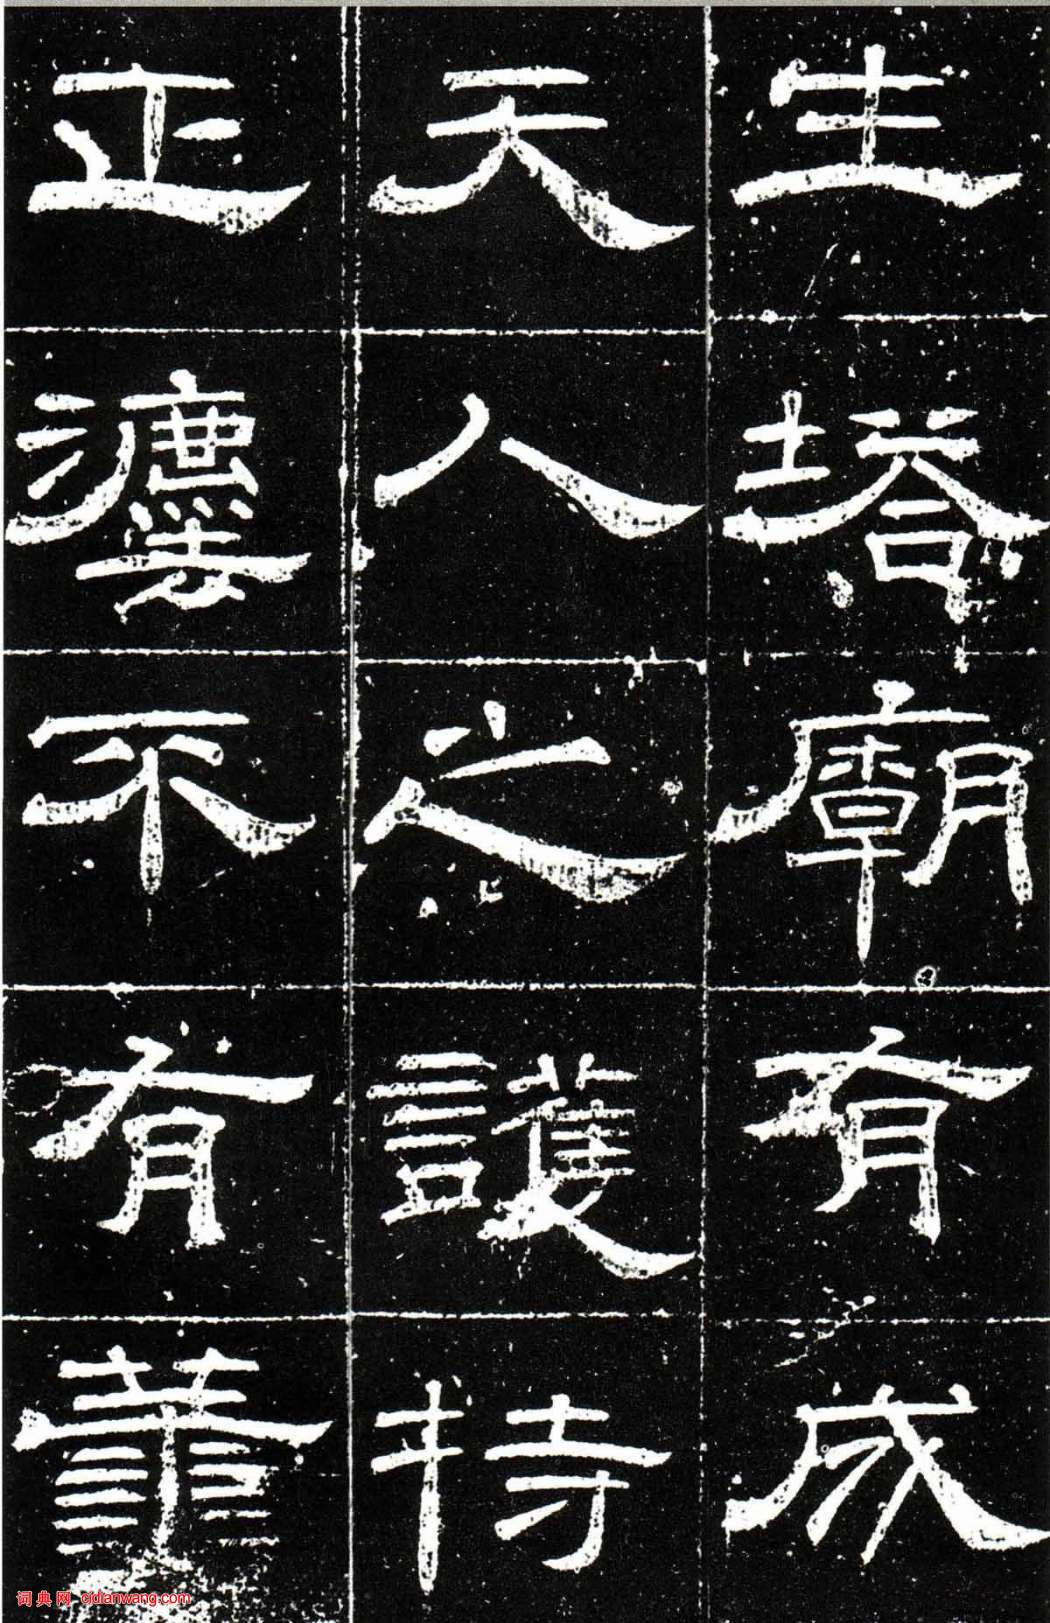 生塔廟有成
天人之護持
正灋不有華
词典网 cidianwang.com